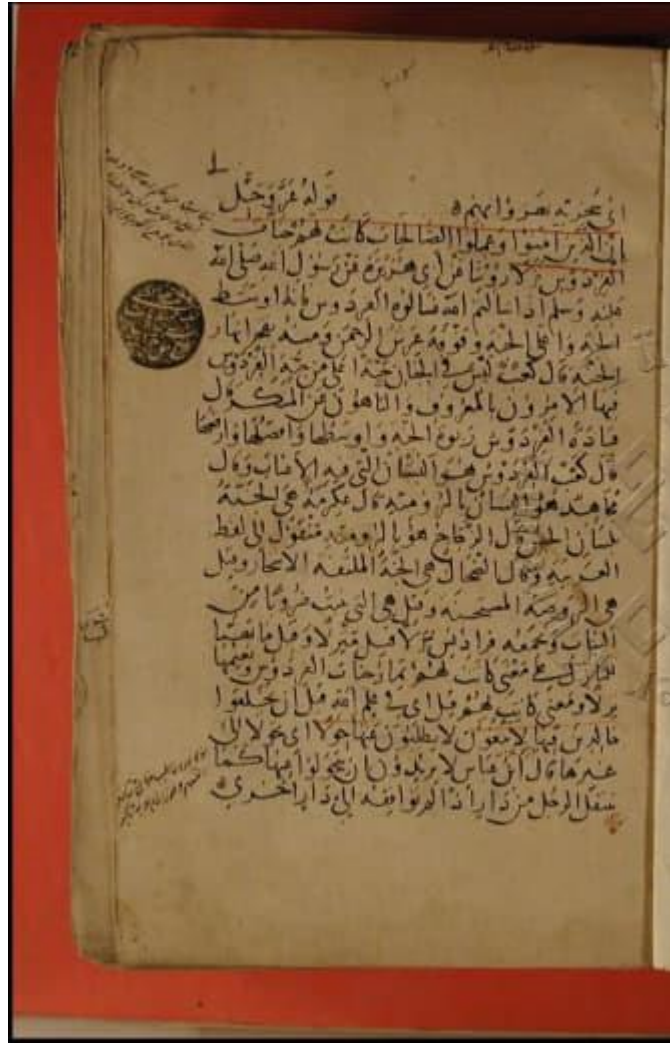 اي سخرية بهم وا بهم ه قوله عز وجل
ان الذين امنوا وعملوا الصالحات كانت لهم جنات
الفردوس نزلا روينا عن ابي هريرة عن رسول الله صلى الله
عليه وسلم اذا سالتم الله فسالوه الفردوس فانه اوسط
الجنة واعلى الجنة وفوقه عرش الرحمن ومنه تفجر انهار
الجنة قال كعب ليس في الجنان جنة اعلى من جنة الفردوس
فيها الامرون بالمعروف والناهون عن المنكر وقال
قتادة الفردوس ربوة الجنة واوسطها وافضلها وارفعها
قال كعب الفردوس هو البستان الذي فيه الاعناب وقال
مجاهد هو البستان بالرومية قال عكرمة هي الجنة
بلسان الحبش قال الزجاج هو بالرومية منقول الى لفظ
العربية وقال الضحاك هي الجنة الملتفة الاشجار وقيل
هي الروضة المستحسنة وقيل هي التي تنبت ضروبا من
النبات وجمعه فراديس نزلا قيل منزلا وقيل ما يهيأ
للنازل على معنى كانت لهم ثمار جنات الفردوس ونعيمها
نزلا ومعنى كانت لهم قيل اي في علم الله قبل ان يخلقوا
خالدين فيها لا يبغون لا يطلبون عنها حولا اي تحولا الى
غيرها قال ابن عباس لا يريدون ان يتحولوا عنها كما
ينتقل الرجل من دار اذا لم توافقه الى دار اخرى